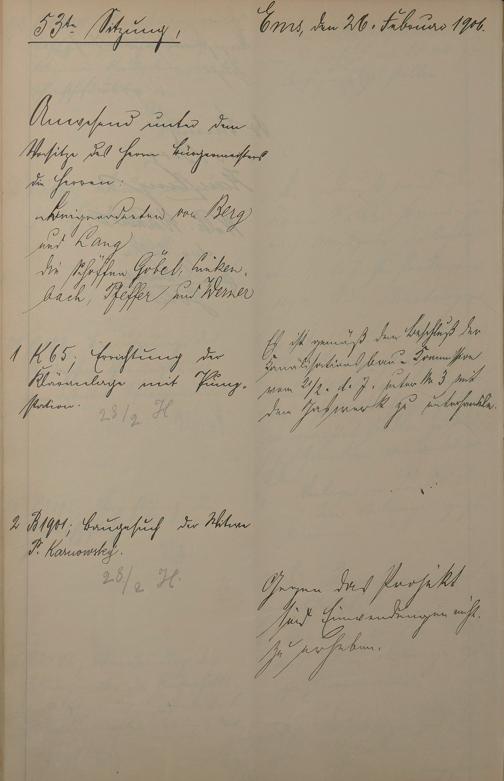 53te Sitzung,
Ems, den 26. Februar 1906.
Anwesend unter dem
Vorsitze des Herrn Bürgermeisters
die Herren:
Beigeordneten von Berg
und Lang
die Schöffen Göbel, Linken-
bach, Pfeffer und Werner
1 K65; Errichtung der
Kläranlage mit Pump-
station.
28/2 H
Es ist gemäß dem Beschluß der
Kanalisationsbau-Kommission
vom 21/2. d. J. unter № 3 mit
dem Gaswerk zu unterhandeln.
2 B1901; Baugesuch der Witwe
P. Karnowsky.
28/2 H.
Gegen das Projekt
sind Einwendungen nicht
zu erheben.